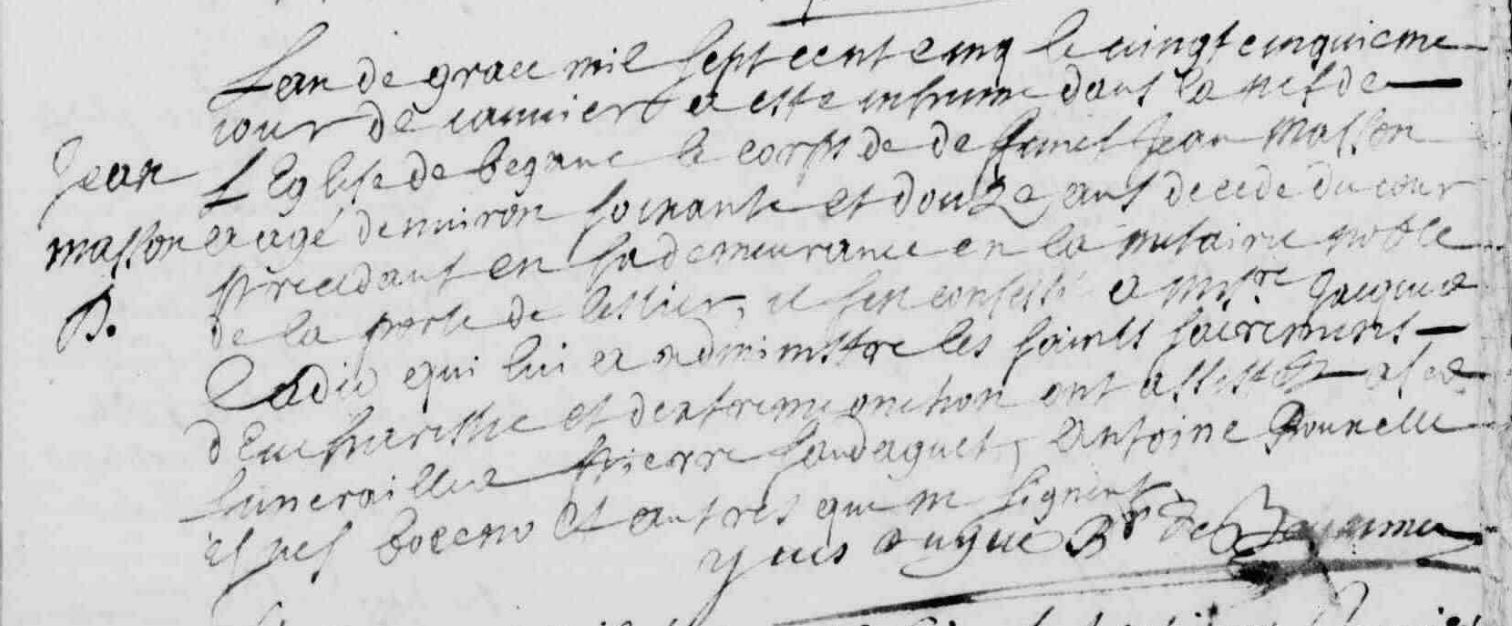 Lan de grace mil sept cent cinq le vingt cinquieme
jour de janvier a este inhumé dans la nef de
Jean
LEglise de beganne le corps de defunct Jean Masson
masson
aagé denviron soixante et douze ans decede du jour
precedant en sa demeurance en la metairie noble
de la porte de lestier, il sest confessé a Missre Jacques
Cadio qui lui a administre les saints sacremens
deucharistie et dextreme onction ont assisté a ses
funerailles Pierre Jandaguet, Antoine Bounelle
et autres qui ne signent
yves R de Beganne